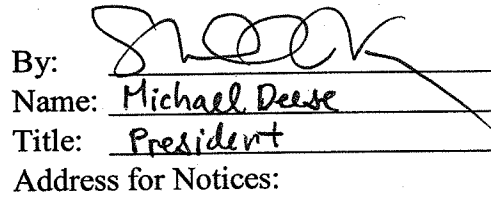 By:
Name: Michael Deese
Title: President
Address for Notices: